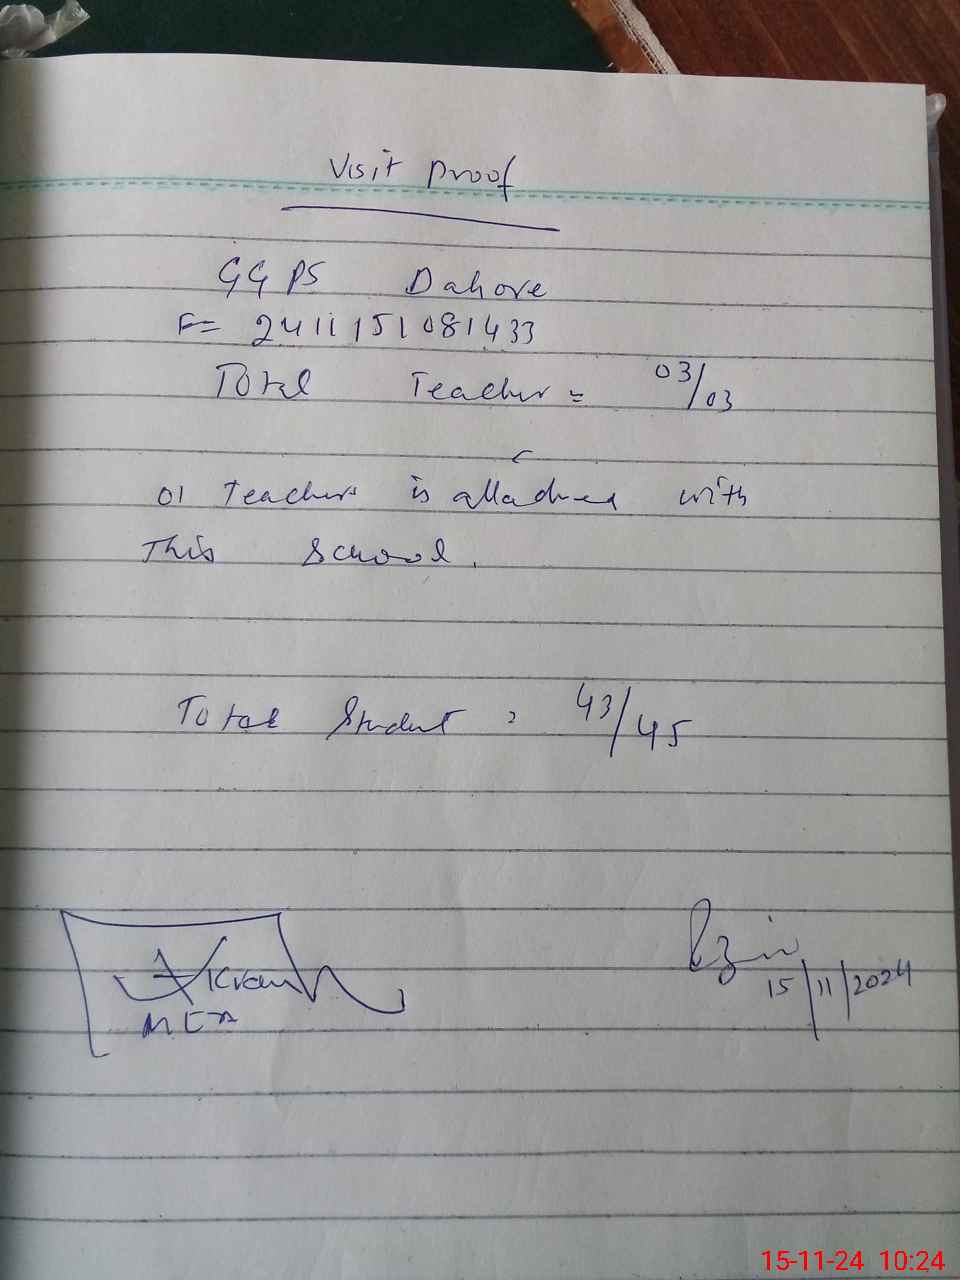 Visit Proof
GGPS Dahore
F= 2411151081433
Total Teacher = 03/03
01 Teachers is attached with
This School.
Total Student = 43/45
Akram
MEA
15/11/2024
15-11-24 10:24